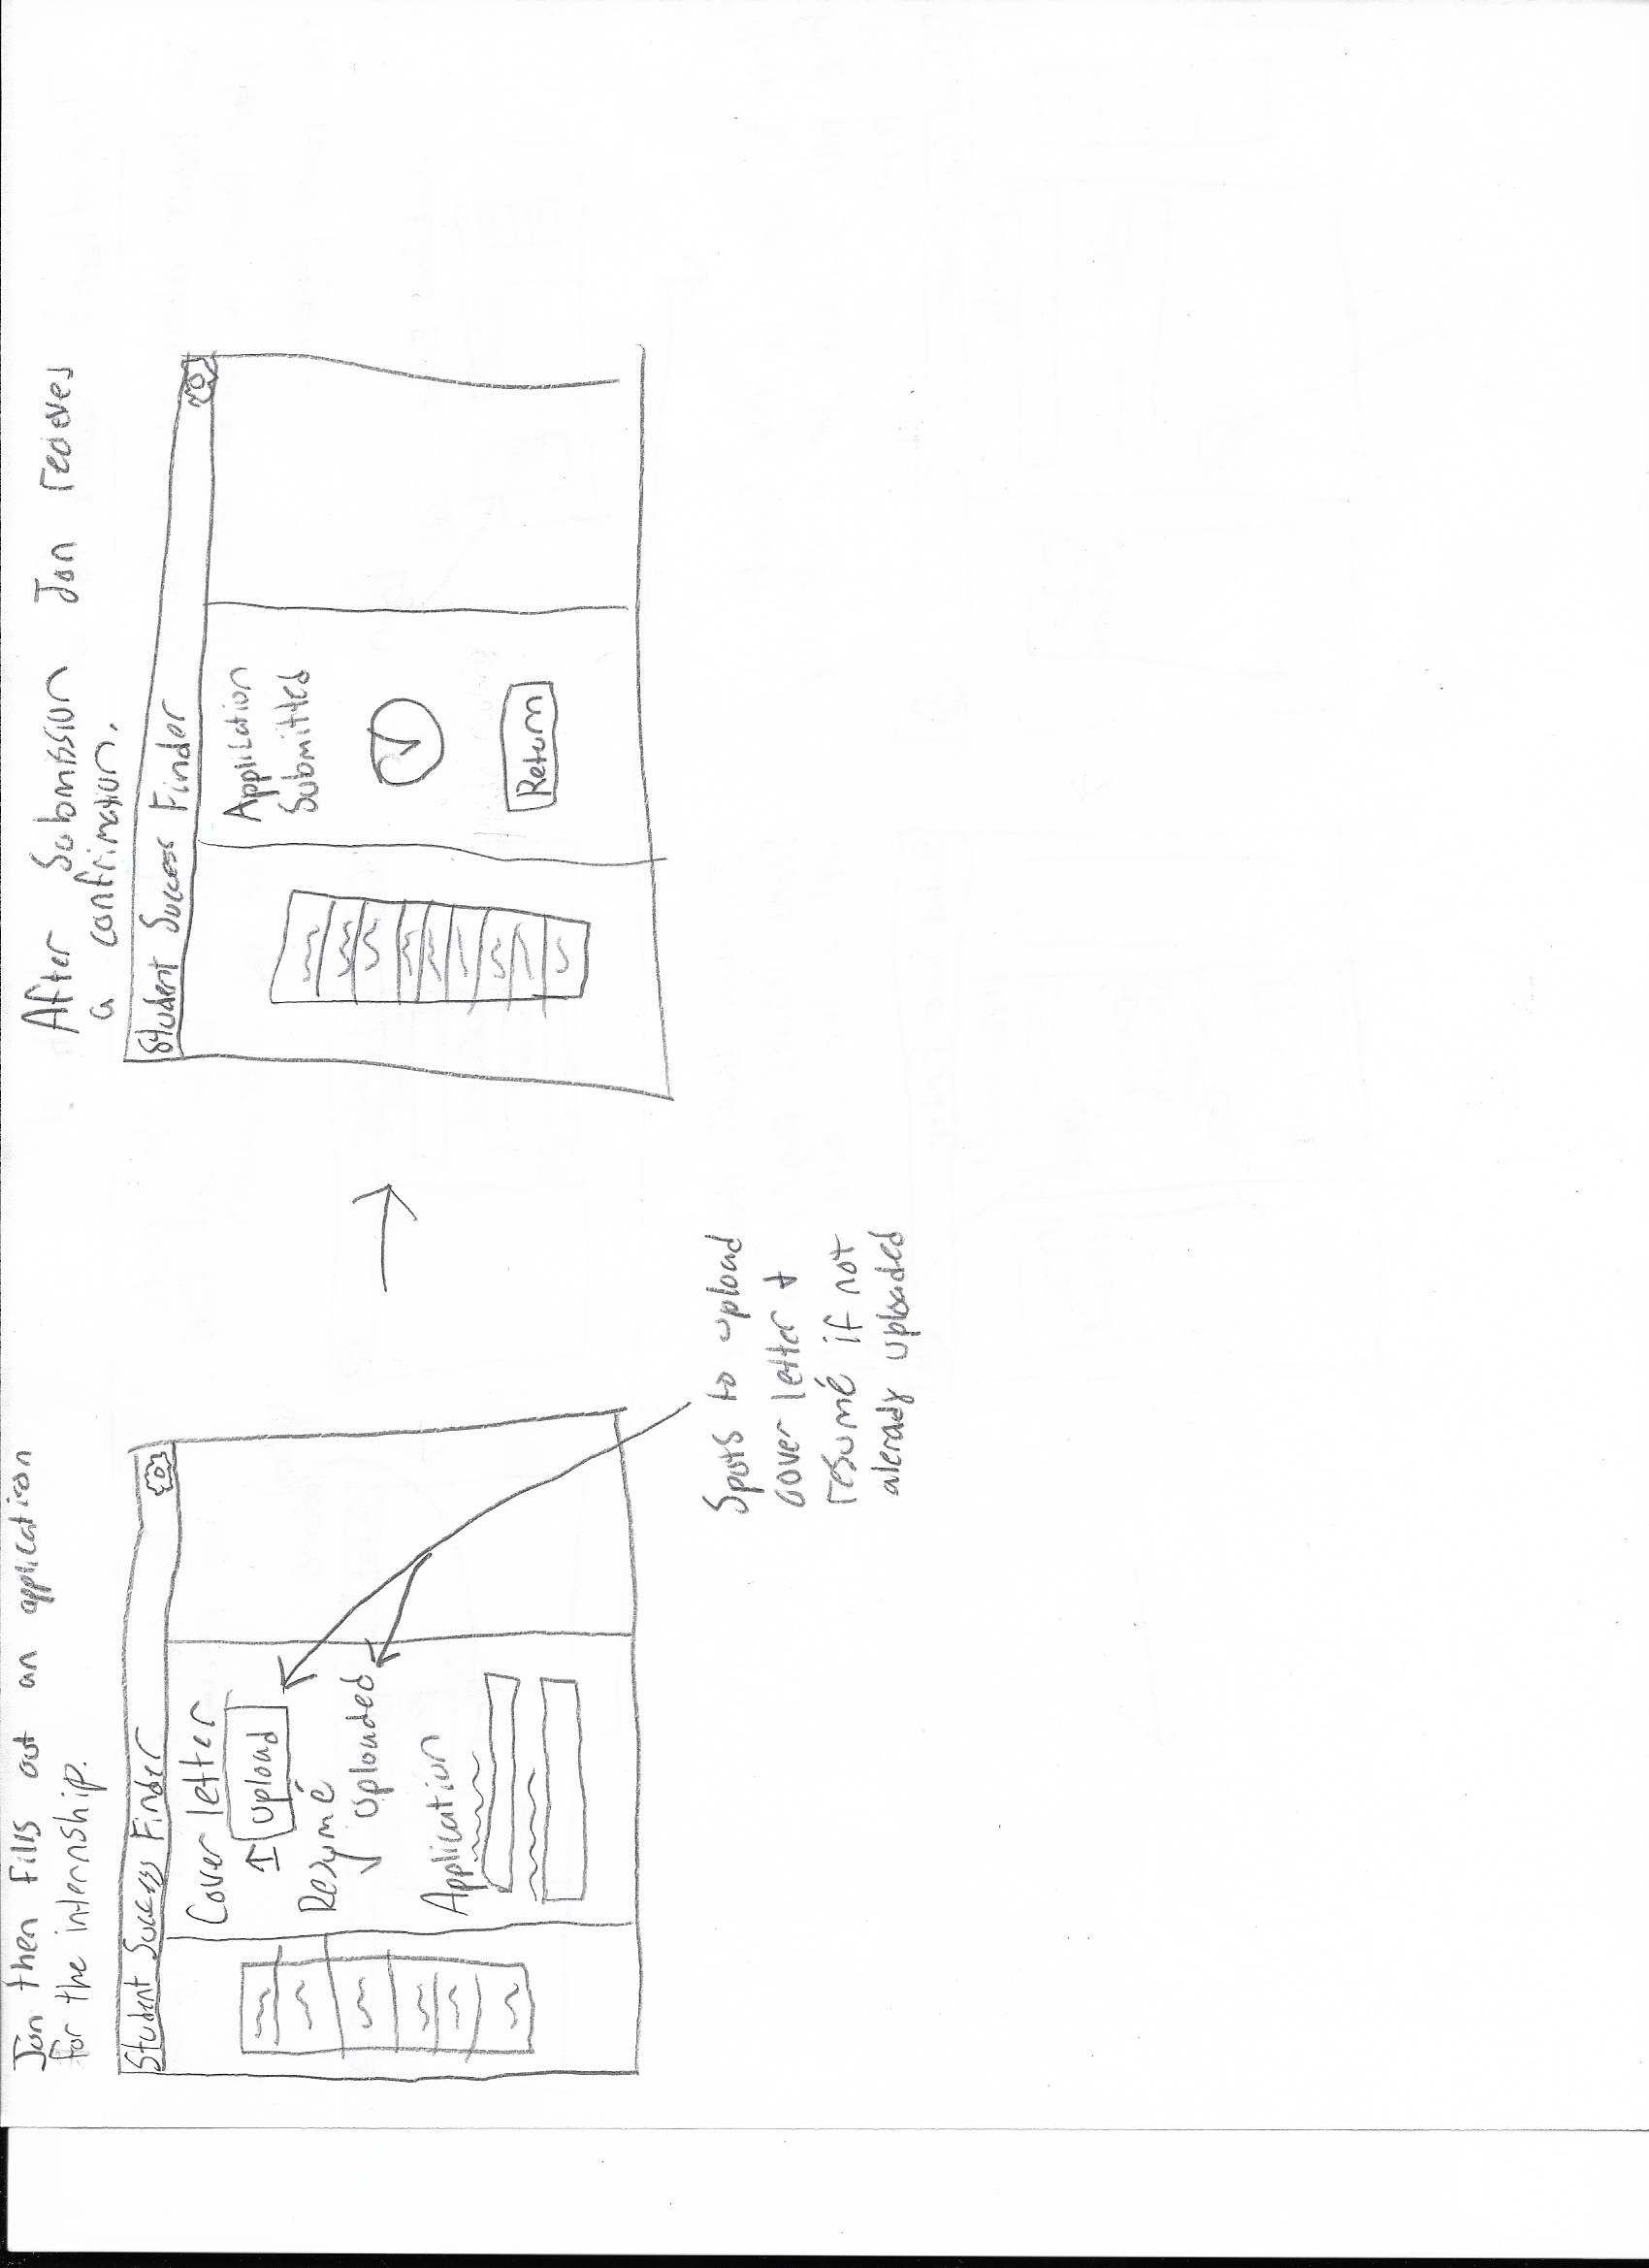 Jon then fills out an application
for the internship.
Student Success Finder
Cover letter
Upload
Resumé
Uploaded
Application
Spots to upload
cover letter +
resumé if not
alerady uploaded
After Submission Jon recieves
a confrimation.
Student Success Finder
Application
Submitted
Return